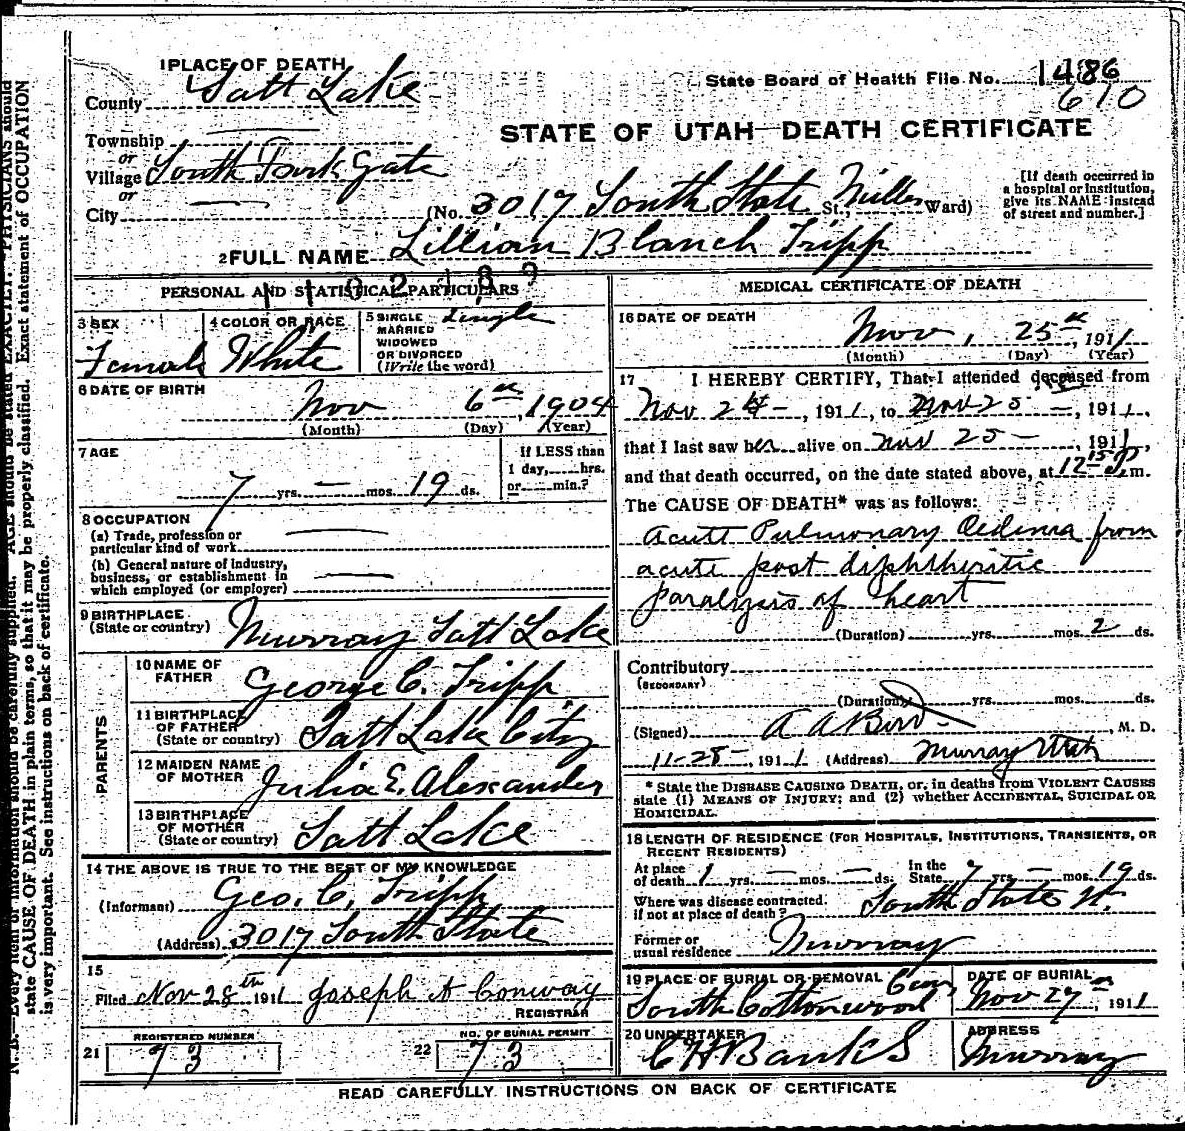 1 PLACE OF DEATH
County Salt Lake
State Board of Health File No. 1486
610
STATE OF UTAH—DEATH CERTIFICATE
Township
or
Village South Gate
or
City
(No. 3017 South State St., Miller Ward)
[If death occurred in a hospital or institution, give its NAME instead of street and number.]
2 FULL NAME Lillian Blanch Tripp
1102189
PERSONAL AND STATISTICAL PARTICULARS
3 SEX
Female
4 COLOR OR RACE
White
5 SINGLE MARRIED WIDOWED OR DIVORCED (Write the word)
Single
6 DATE OF BIRTH
Nov 6th, 1904
(Month) (Day) (Year)
7 AGE
7 yrs. — mos. 19 ds.
If LESS than 1 day,......hrs. or......min.?
8 OCCUPATION
(a) Trade, profession or particular kind of work
(b) General nature of industry, business, or establishment in which employed (or employer)
9 BIRTHPLACE
(State or country) Murray Salt Lake
PARENTS
10 NAME OF FATHER George C. Tripp
11 BIRTHPLACE OF FATHER (State or country) Salt Lake City
12 MAIDEN NAME OF MOTHER Julia E. Alexander
13 BIRTHPLACE OF MOTHER (State or country) Salt Lake
14 THE ABOVE IS TRUE TO THE BEST OF MY KNOWLEDGE
(Informant) Geo. C. Tripp
(Address) 3017 South State
15
Filed Nov 28th 1911 Joseph A Conway
REGISTRAR
REGISTERED NUMBER
21 73
NO. OF BURIAL PERMIT
22 73
MEDICAL CERTIFICATE OF DEATH
16 DATE OF DEATH
Nov, 25th, 1911
(Month) (Day) (Year)
17 I HEREBY CERTIFY, That I attended deceased from
Nov, 1911, to Nov 25 —, 1911,
that I last saw her alive on Nov 25 —, 1911,
and that death occurred, on the date stated above, at 12 15 P.m.
The CAUSE OF DEATH* was as follows:
Acute Pulmonary Oedema from
acute post diphtheritic
paralysis of heart
(Duration) yrs. mos. 2 ds.
Contributory
(SECONDARY)
(Duration) yrs. mos. ds.
(Signed) A A Bird, M. D.
11-28-, 1911 (Address) Murray Utah
* State the DISEASE CAUSING DEATH, or, in deaths from VIOLENT CAUSES state (1) MEANS OF INJURY; and (2) whether ACCIDENTAL, SUICIDAL OR HOMICIDAL.
18 LENGTH OF RESIDENCE (FOR HOSPITALS, INSTITUTIONS, TRANSIENTS, OR RECENT RESIDENTS)
At place of death 1 yrs. — mos. — ds. In the State 7 yrs. — mos. 19 ds.
Where was disease contracted, if not at place of death? South State St.
Former or usual residence Murray
19 PLACE OF BURIAL OR REMOVAL
South Cottonwood Cem,
DATE OF BURIAL
Nov 27th, 1911
20 UNDERTAKER
C H Banks
ADDRESS
Murray
READ CAREFULLY INSTRUCTIONS ON BACK OF CERTIFICATE
N. B.—Every item of information should be carefully supplied. AGE should be stated EXACTLY. PHYSICIANS should
state CAUSE OF DEATH in plain terms, so that it may be properly classified. Exact statement of OCCUPATION
is very important. See instructions on back of certificate.